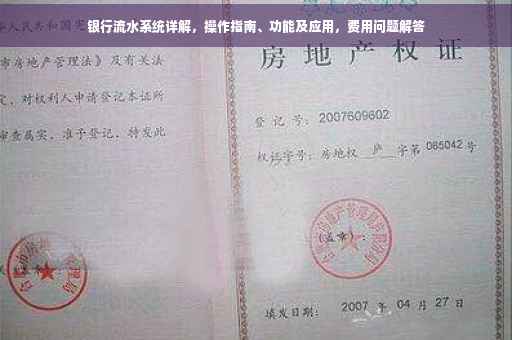 银行流水系统详解，操作指南、功能及应用，费用问题解答
人民共和国宪
市房地产管理法》及有关法
定，对权利人申请登记本证所
审查属实，准予登记，特发此
房地产权证
登记号：2007609602
权证字号：房地权 庐 字第 085042 号
(盖章)：
填发日期：2007 年 04 月 27 日